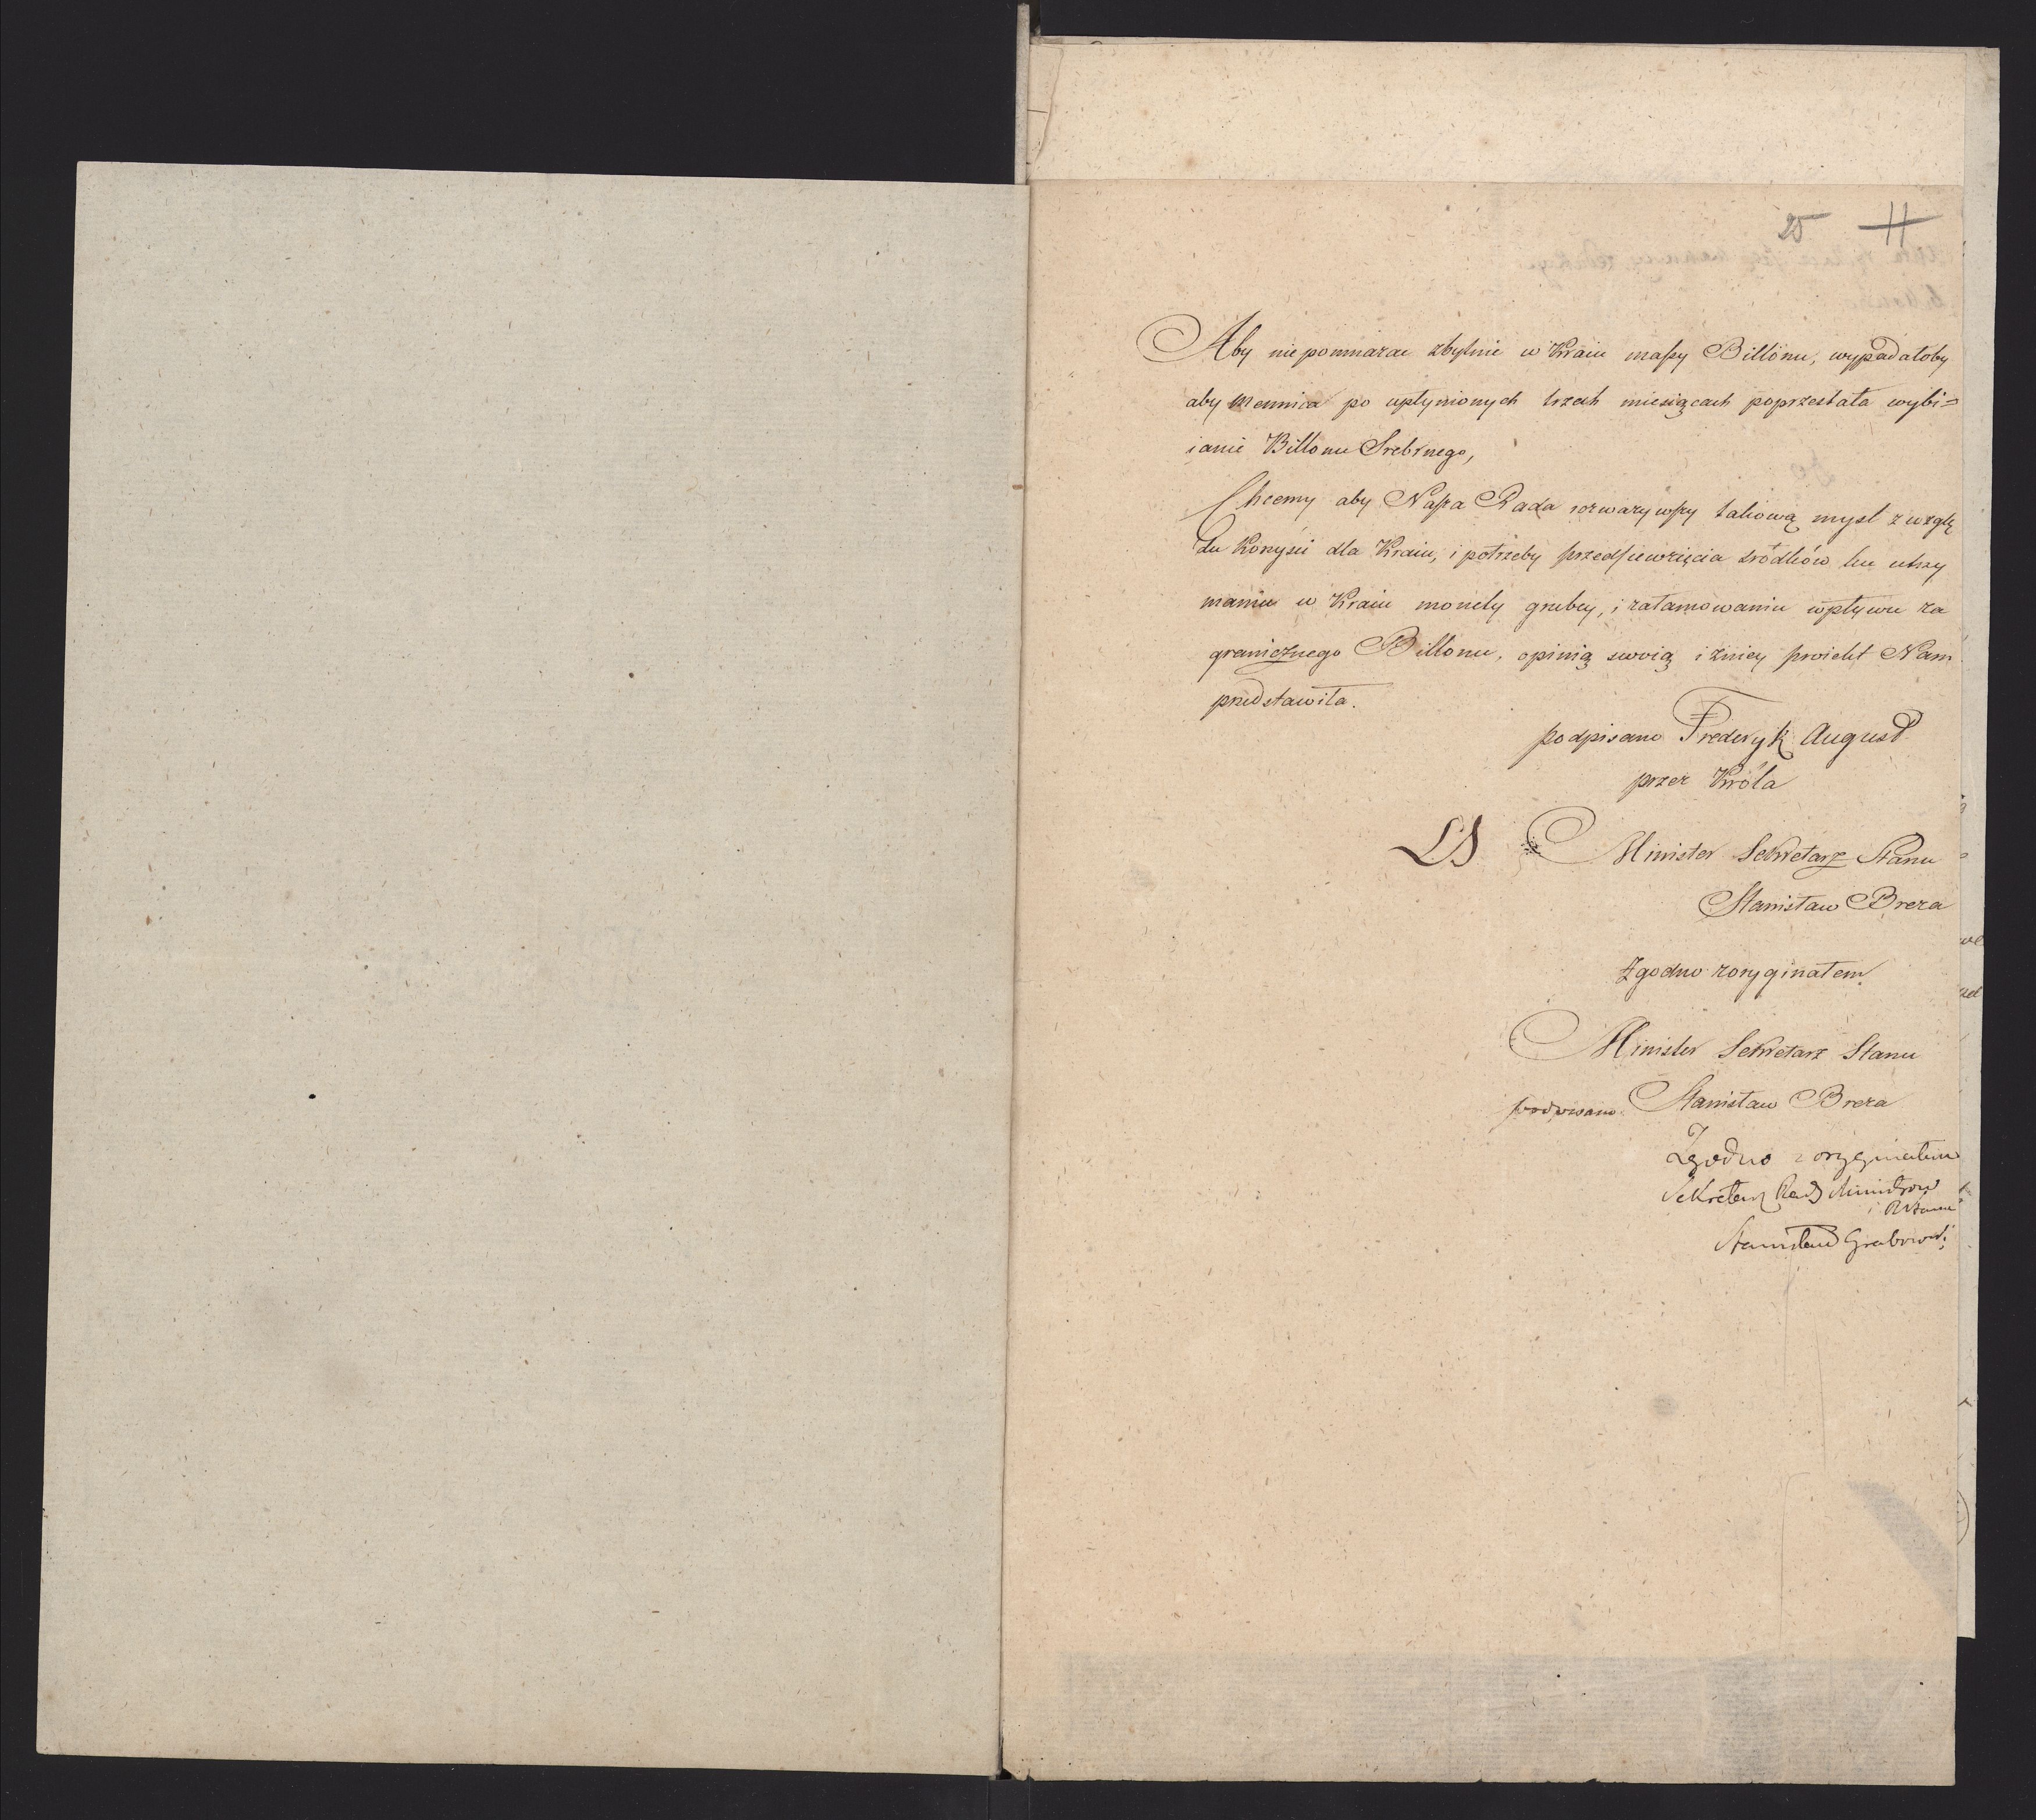 25 11
Aby niepomnażać zbytnie w Kraiu massy Billonu, wypadałoby
aby Mennica po upłynionych trzech miesiącach poprzestała wybi=
ianie Billonu Srebrnego,
Chcemy aby Nasza Rada rozważywszy takową myśl z wzglę
du korzyści dla Kraiu, i potrzeby przedsięwzięcia środków ku utrzy
maniu w Kraiu monety grubey, i zatamowaniu wpływu za
granicznego Billonu, opinią swoią i zniey proiekt Nam
przedstawiła.
podpisano Frederyk August
przez Króla
LS Minister Sekretarz Stanu
Stanisław Breza
Zgodno z oryginałem
Minister Sekretarz Stanu
podpisano Stanisław Breza
Zgodno z oryginałem
Sekretarz Rady Ministrow
i R Stanu
Stanisław Grabowski